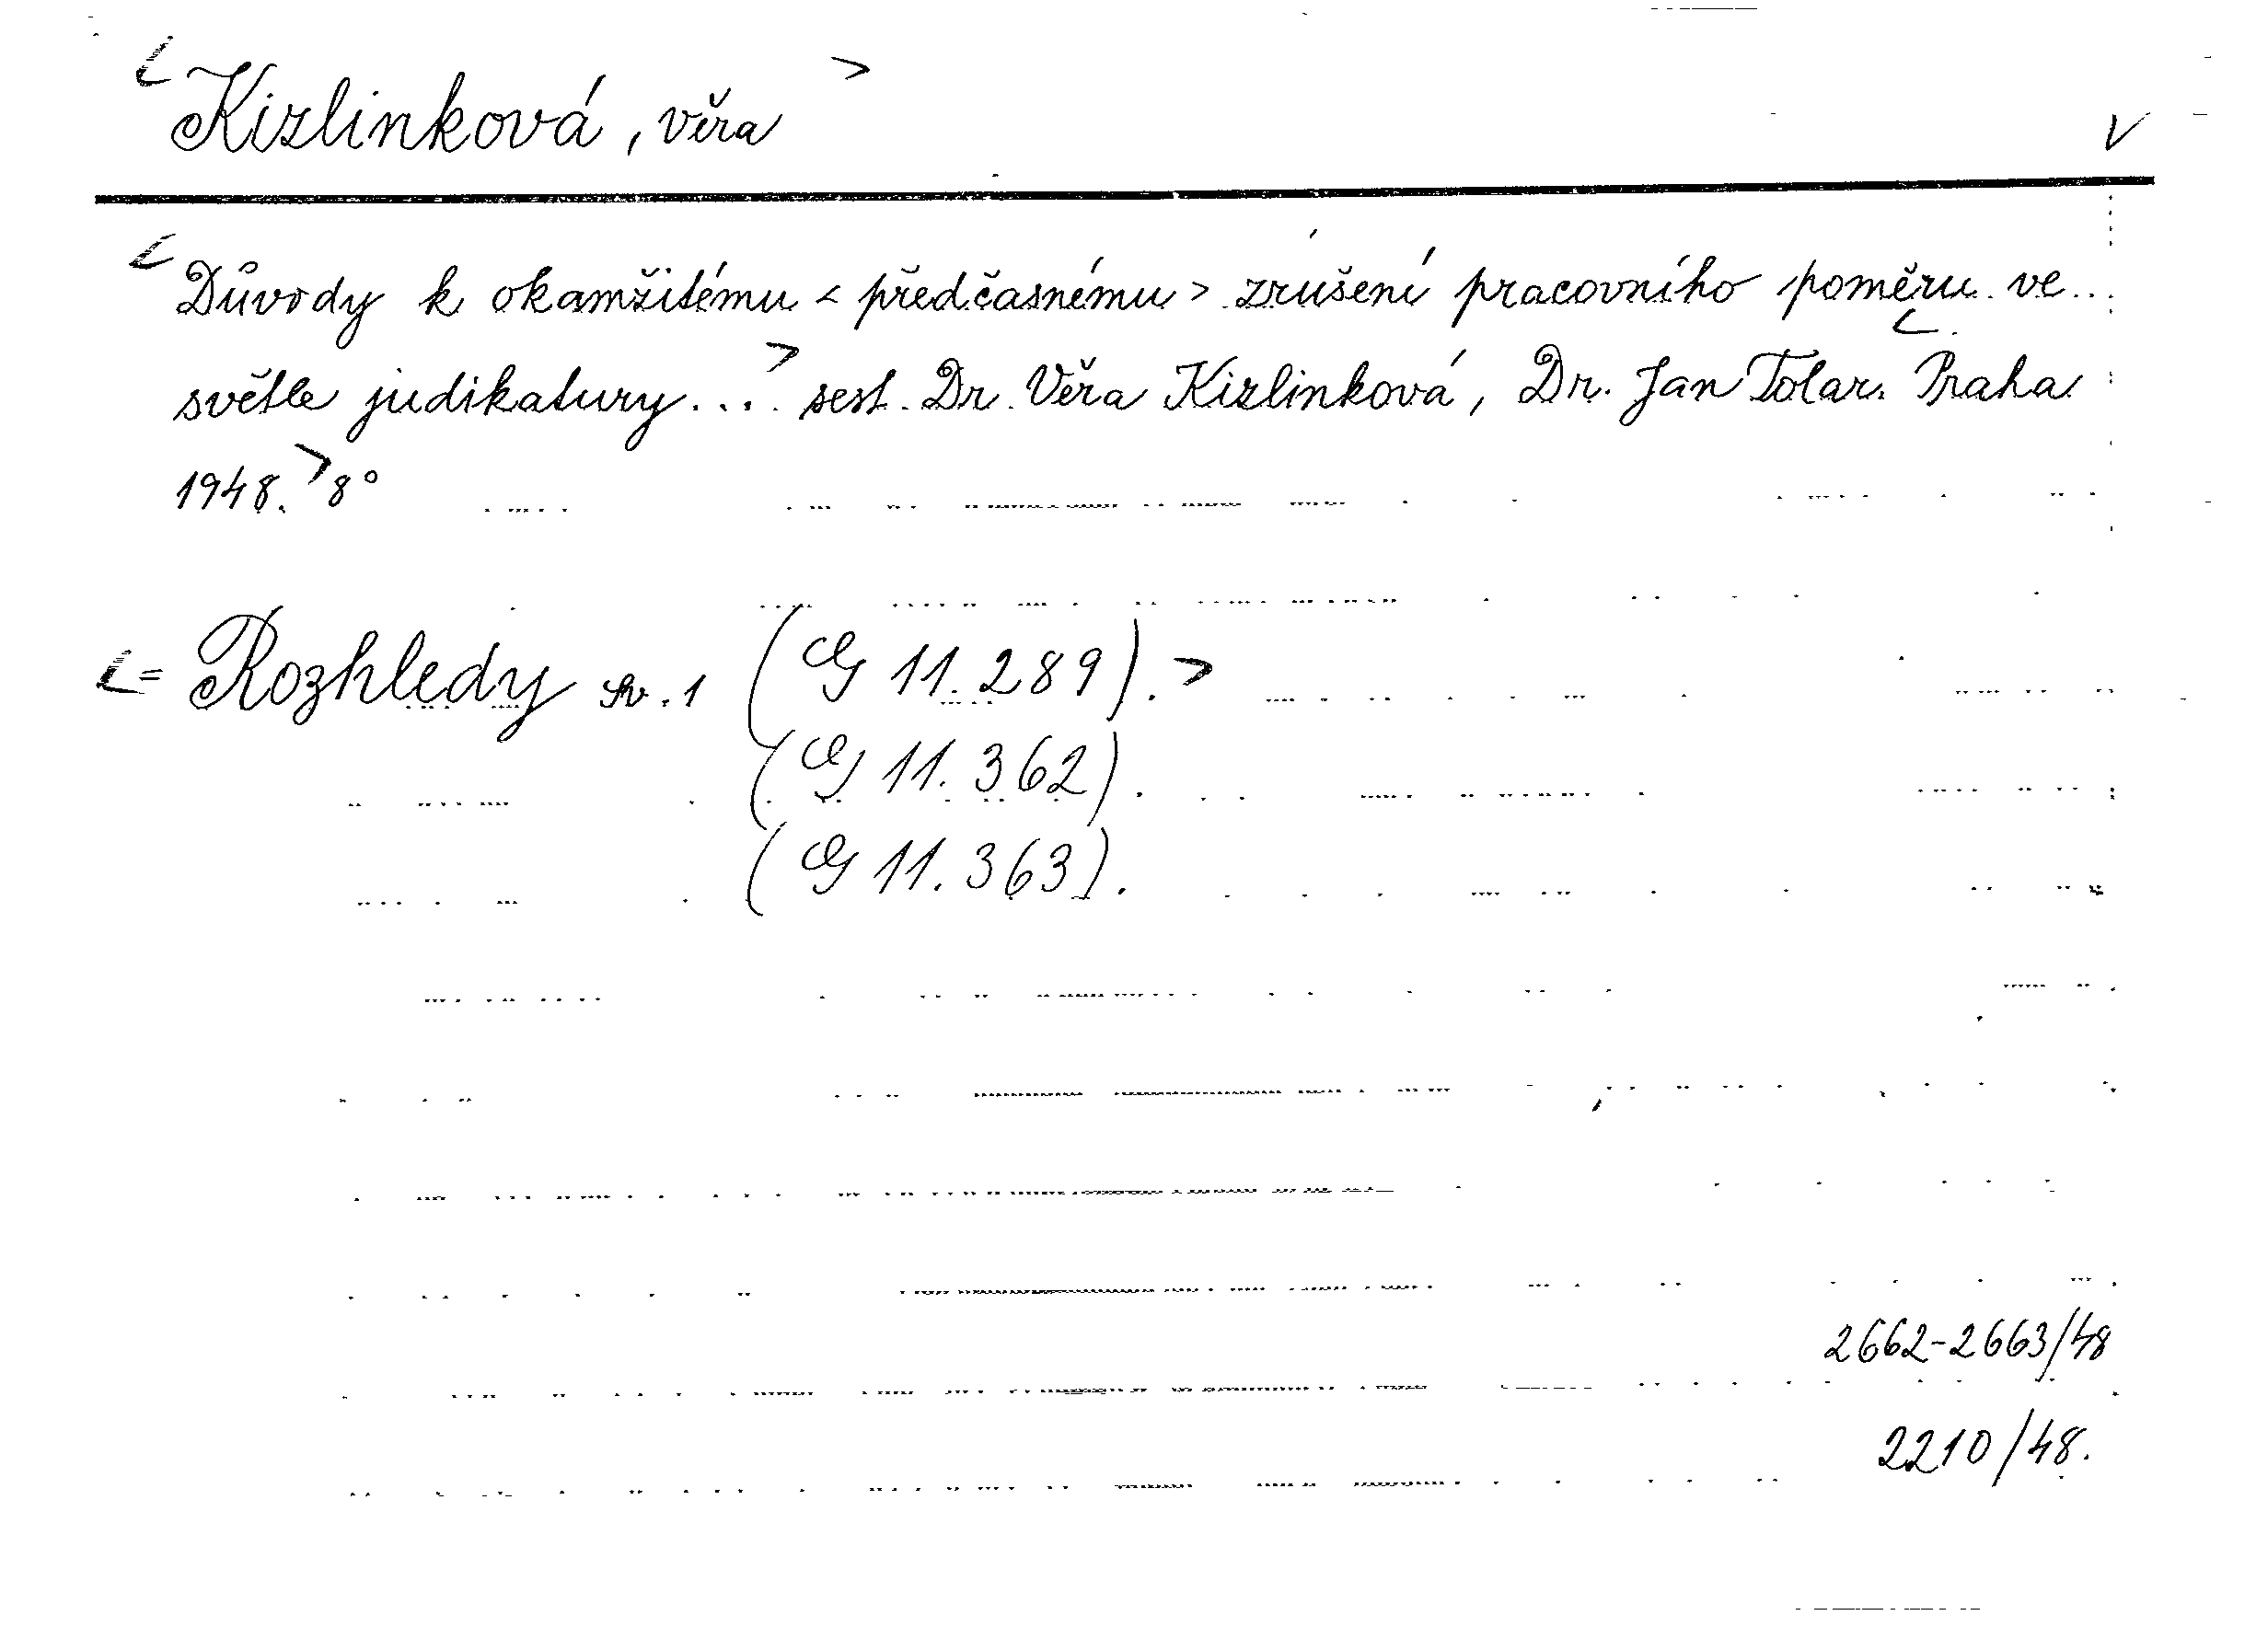 < Kizlinková, Věra >
V
< Důvody k okamžitému < předčasnému > zrušení pracovního poměru ve
světle judikatury... > sest. Dr. Věra Kizlinková, Dr. Jan Tolar. < Praha
1948. > 8°
< = Rozhledy sv. 1 (G 11.289). >
(G 11.362).
(G 11.363).
2662-2663/48
2210/48.